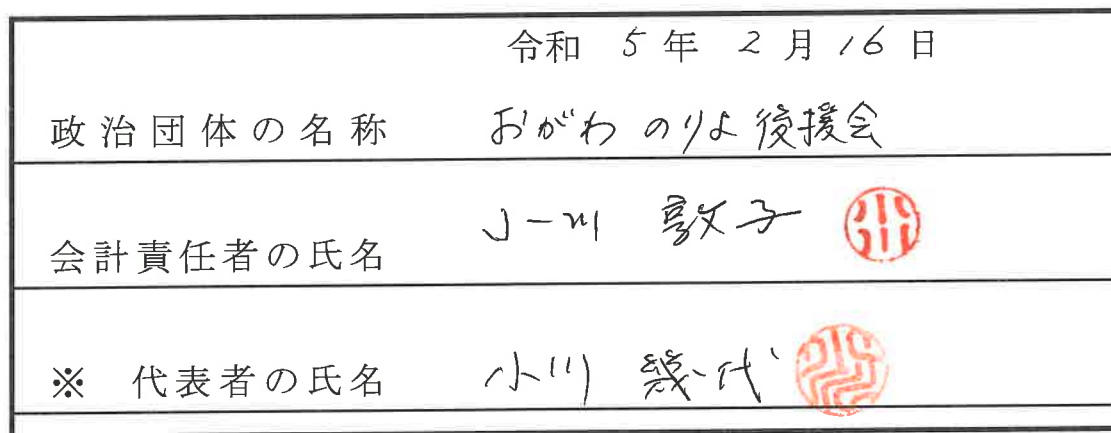 令和 5年 2月 16日
政治団体の名称 おがわ のりよ 後援会
会計責任者の氏名 小川 敦子 小川
※ 代表者の氏名 小川 幾代